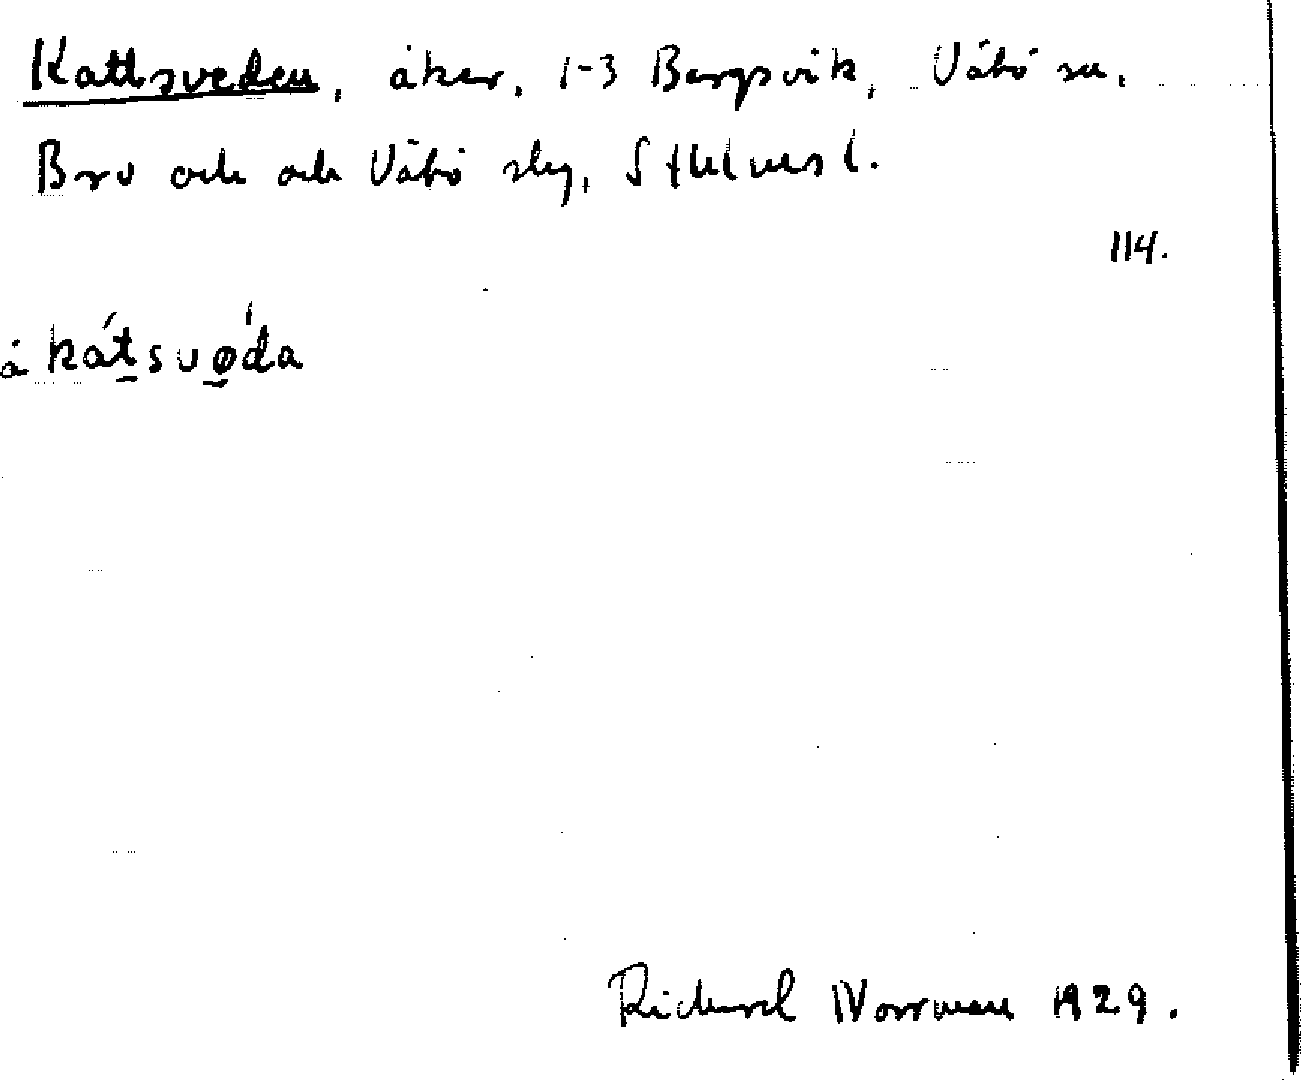 Kattsveden, åker, 1-3 Bergsvik, Vätö sn,
Bro och och Vätö slg, Sthlms l.
114.
å kátsvǿda
Richard Norrman 1929.